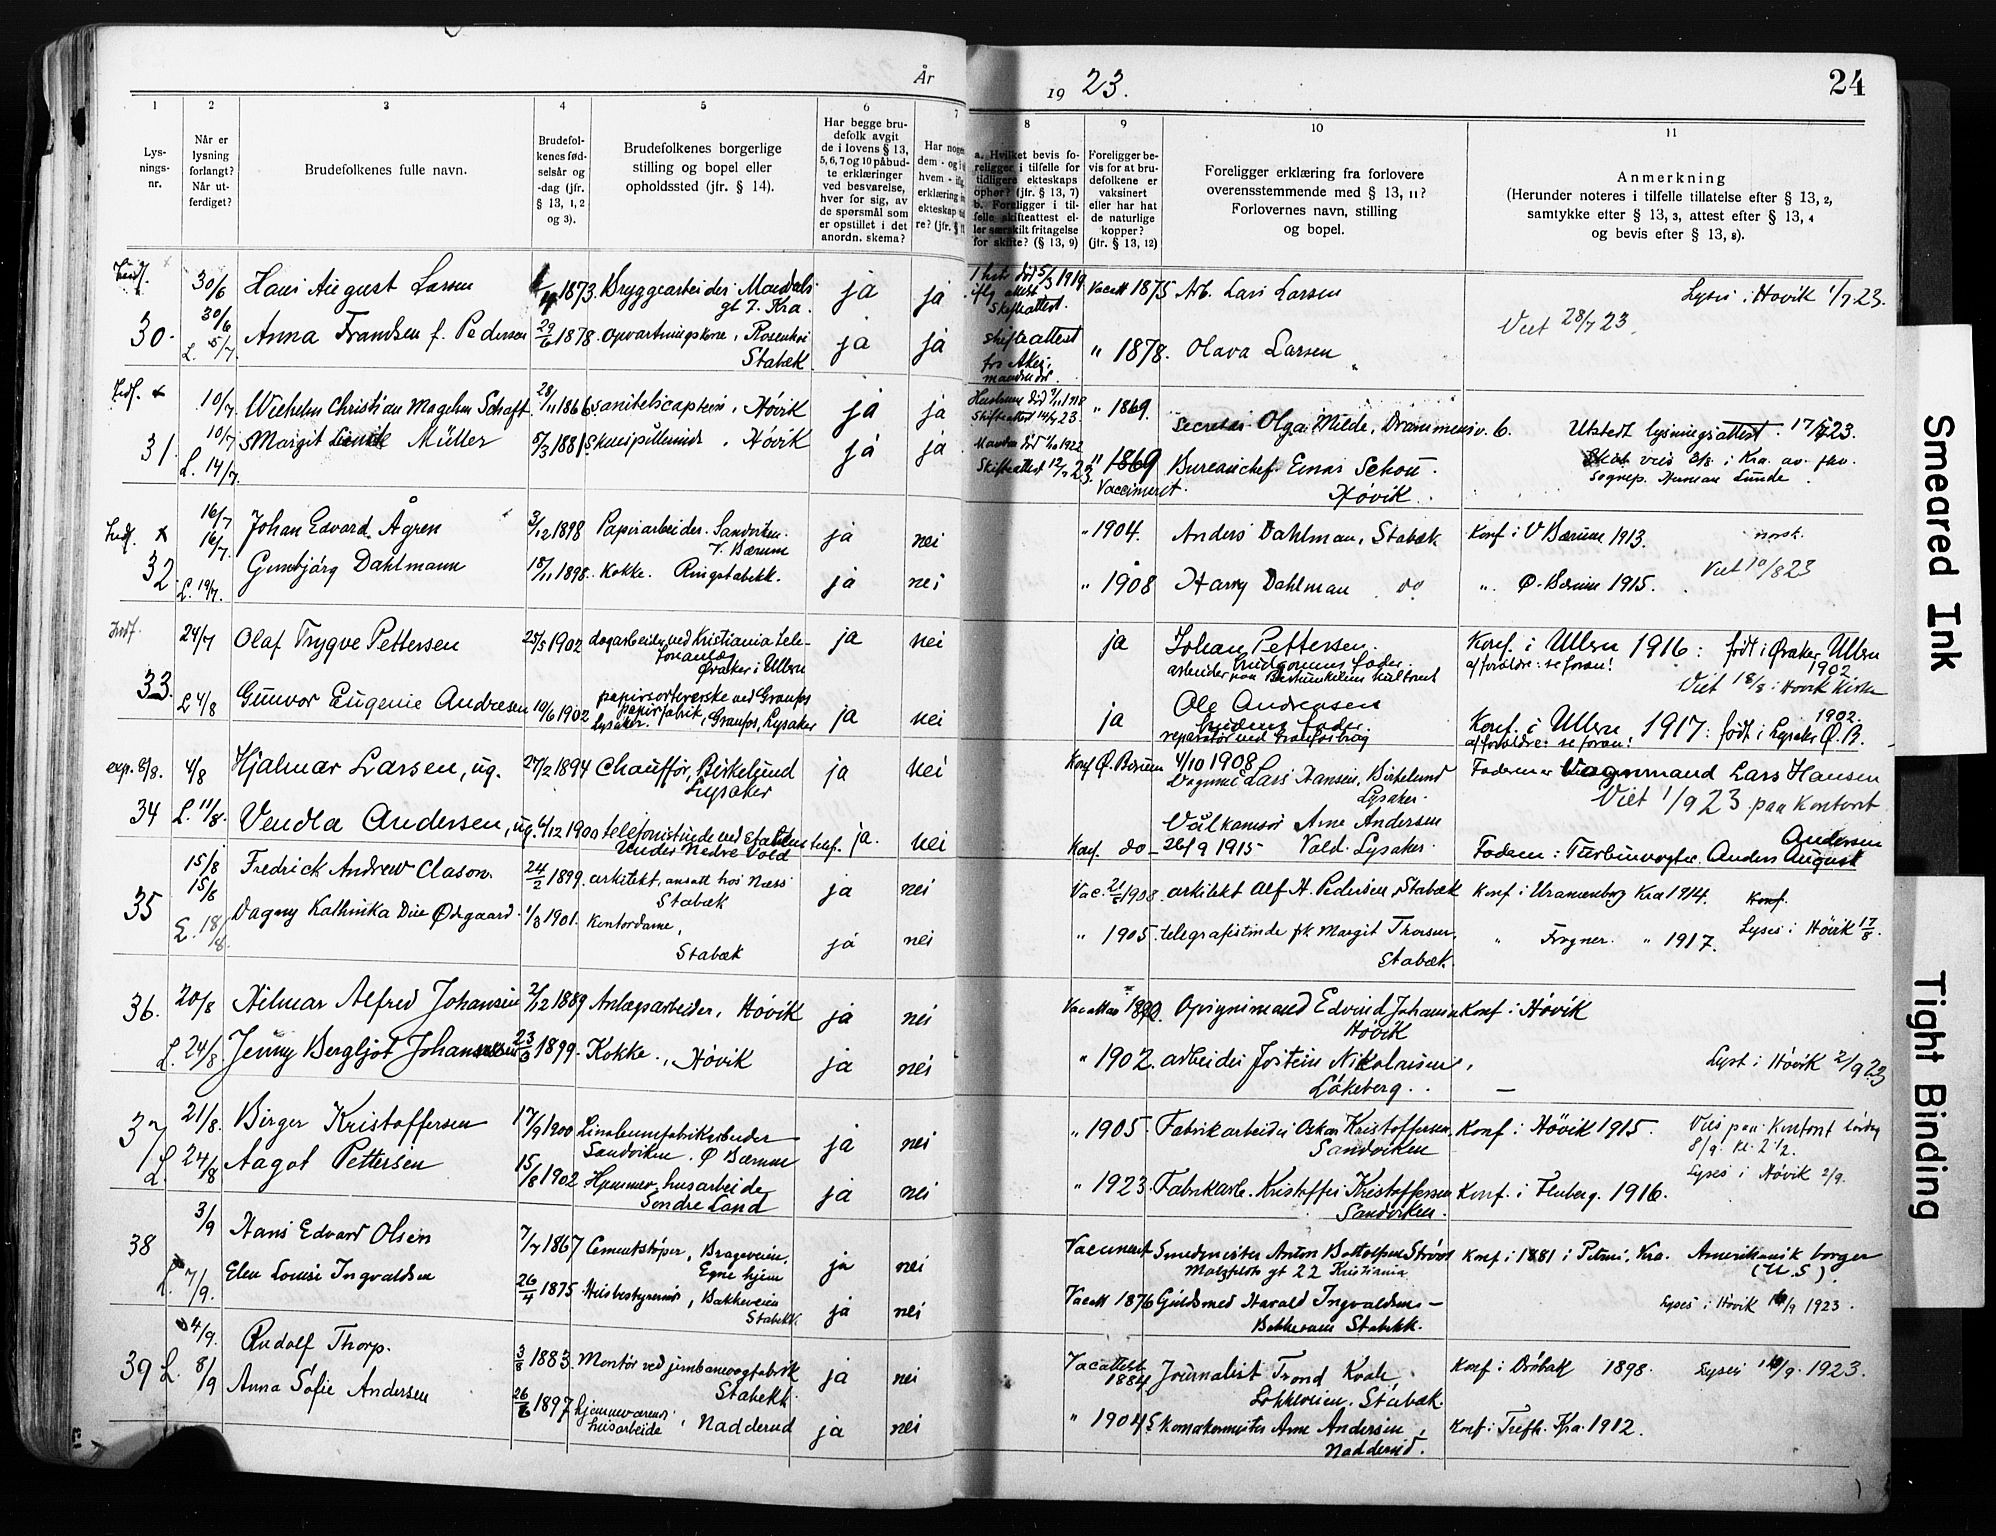 År 1923.
24
1
Lys-
nings-
nr.
2
Når er
lysning
forlangt?
Når ut-
ferdiget?
3
Brudefolkenes fulle navn.
4
Brudefol-
kenes fød-
selsår og
-dag (jfr.
§ 13, 1, 2
og 3).
5
Brudefolkenes borgerlige
stilling og bopel eller
opholdssted (jfr. § 14).
6
Har begge bru-
defolk avgit
de i lovens § 13,
5, 6, 7 og 10 påbud-
te erklæringer
ved besvarelse,
hver for sig, av
de spørsmål som
er opstillet i det
anordn. skema?
7
Har nogen
dem - og i
hvem - ifl
erklæring in
ekteskap ti
re? (jfr. § 1
8
a. Hvilket bevis fo-
religger i tilfelle for
tidligere ekteskaps
ophør? (jfr. § 13, 7)
b. Foreligger i til-
felle skifteattest el-
ler særskilt fritagelse
for skifte? (§ 13, 9)
9
Foreligger be-
vis for at bru-
defolkene er
vaksinert
eller har hat
de naturlige
kopper?
(jfr. § 13, 12)
10
Foreligger erklæring fra forlovere
overensstemmende med § 13, 11?
Forlovernes navn, stilling
og bopel.
11
Anmerkning
(Herunder noteres i tilfelle tillatelse efter § 13, 2,
samtykke efter § 13, 3, attest efter § 13, 4
og bevis efter § 13, 8).
30/6 Hans August Larsen 1873. Bryggearbeider Mandals
gt 7. Kra. ja ja
1. hstr død 5/3 1919
iflg attest
Skifteattest.
Vacatt 1875 Arb. Lars Larsen
Lyses i Høvik 1/7 23.
Viet 28/7 23.
30. 30/6 L. 5/7 Anna Frandsen f. Pedersen 29/6 1878. Opvartningskone, Rosenhoi
Stabæk ja ja
skifteattest
fra Aker,
" 1878. Olava Larsen
10/7 Wilhelm Christian Magelsen Schaft 28/11 1866 Sanitetscaptein, Høvik ja ja
Skifteattest 14/7 23
" 1869. Secretær Olga Milde, Drammensv. 6. Utstedt lysningsattest. 17/7 23.
31. 10/7 L. 14/7 Margit Müller 5/3 1881 Høvik ja ja
Skifteattest 12/7 23
" 1869 Vaccineret. Bureauchef Einar Schou
Høvik.
viet 3/8 i Kra. av
Sognep. Herman Lunde
16/7 Johan Edvard Ågren 3/12 1898 Papirarbeider. Sandviken
V. Bærum ja nei
" 1904. Anders Dahlman, Stabæk Konf i V Bærum 1913. norsk.
32 16/7 L. 19/7. Gunbjørg Dahlmann 18/11 1898. Kokke. Ringstabekk. ja nei
" 1908 Harry Dahlman do " Ø. Bærum 1915. Viet 10/8 23
24/7 Olaf Trygve Pettersen 25/5 1902 dagarbeider ved Kristiania tele-
fonanlæg
Øraker i Ullern ja nei
ja Johan Pettersen
brudgommens fader.
Konf. i Ullern 1916: født i Øraker Ullern
1902
af forældre: se foran!
Viet 18/8 i Høvik Kirke
33. L 4/8 Gunvor Eugenie Andresen 10/6 1902 papirsorererske ved Granfos
papirfabrik, Granfos, Lysaker
Lysaker. ja nei
ja Ole Andresen
brudens fader
reparatør ved Granfos brug
Konf. i Ullern 1917: født i Lysaker Ø. B.
1902.
af forældre: se foran!
exp. 8/8. 4/8 Hjalmar Larsen, ug. 27/2 1894 Chauffør, Birkelund
Lysaker ja nei
Konf Ø. Bærum 4/10 1908
Vognm. Lars Hansen, Birkelund
Lysaker.
Faderen er Vognmand Lars Hansen
Viet 1/9 23 paa Kontoret
34 L. 11/8. Vendla Andersen, ug. 6/12 1900 telefonistinde ved Statens telef.
Under Nedre Vold ja. nei
Konf. do - 26/9 1915 Vålkansør Arne Andersen
Vold. Lysaker.
Faderen: Turbinvogter Anders August
Andersen
15/8 Fredrick Andrew Clason. 24/2 1899. arkitekt, ansatt hos Næss
Stabæk ja nei
Vac. 21/6 1908 arkitekt Alf H. Pedersen, Stabæk Konf. i Uranienborg Kra 1914.
35 15/8 L. 18/8. Dagny Kathinka Due Ødegaard. 1/3 1901. Kontordame,
Stabæk ja nei
" 1905. telegrafistinde frk Margit Thorsen
Stabæk. " Frogner. " 1917. Lyses i Høvik 17/8.
36. 20/8 Hilmar Alfred Johansen 2/12 1889 Anlægsarbeider, Høvik ja nei
Vacatt 1890. Opsynsmand Edvind Johansen
Høvik Konf i Høvik
L. 24/8 Jenny Bergljot Johannessen 23/3 1899. Kokke, Høvik ja nei
" 1902. arbeider Jostein Nikolaisen,
Løkeberg. — Lyst i Høvik 2/9 23
37 21/8. Birger Kristoffersen 17/9 1900 Linoleumfabrikarbeider
Sandviken. Ø Bærum ja nei
" 1905. Fabrikarbeider Oskar Kristoffersen,
Sandviken Konf i Høvik 1915. Vies paa Kontoret lørdag
8/9. kl. 2 1/2.
Lyses i Høvik 2/9.
L 24/8 Aagot Pettersen 15/8 1902 Hjemmev. husarbeide
Søndre Land ja nei
" 1923. Fabrikarb. Kristoffer Kristoffersen
Sandviken. Konf. i Fluberg. 1916.
38 3/9 Hans Edvard Olsen 7/7 1867 Cementstøper, Brageveien,
Egne hjem ja nei
Vaccineret Smedmester Anton Bottolfsen Strøm
Maltzfeldts gt 22 Kristiania Konf i 1881 i Petrus. Kra. Amerikansk borger
(U.S.).
L. 7/9. Elen Lovise Ingvaldsen 26/4 1875 Husbestyrerinde, Bakkeveien
Stabekk ja nei
Vacatt 1876 Guldsmed Harald Ingvaldsen -
Bakkeveien Stabekk. Lyses i Høvik 16/9 1923.
4/9. Rudolf Thorp. 3/8 1883. Montør ved jernbanevogfabrik
Stabekk ja nei
Vacattest
1884 Journalist Trond Kvale,
Løkkeveien. Stabæk. Konf i Drøbak 1898. Lyses 16/9. 1923.
39 L. 8/9 Anna Sofie Andersen 26/6 1897 hjemmeværende,
husarbeide Nadderud ja nei
" 1904 Skomakermester Arne Andersen,
Nadderud. Konf. i Trefh. Kra. 1912.
Smeared Ink
Tight Binding